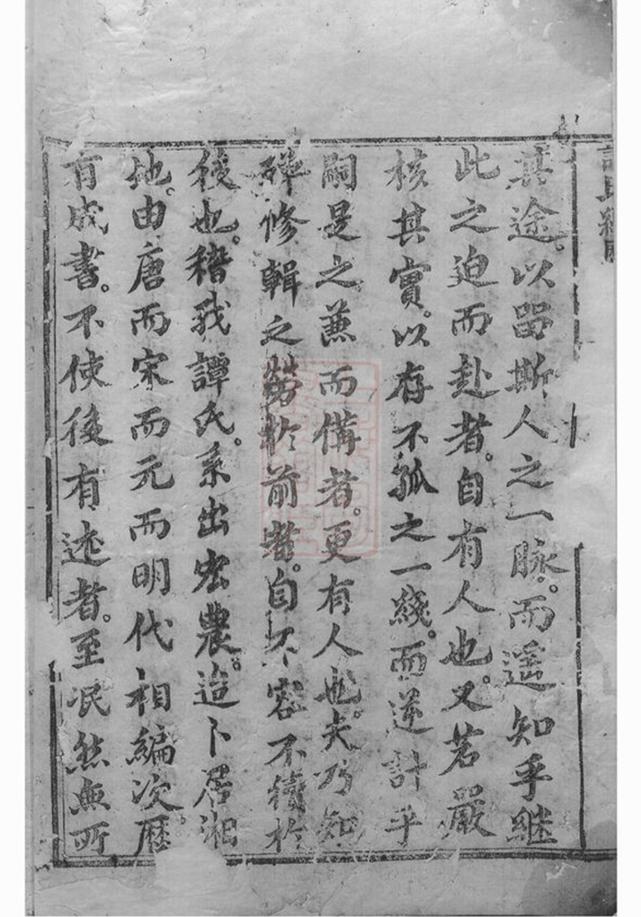 其途。以留斯人之一脉。而遥知乎継
此之迫而赴者。自有人也。又若嚴
核其實。以存不孤之一綫。而逆計乎
嗣是之蒹而備者。更有人也。夫乃知
殫修輯之勞於前者。自不容不績於
後也。稽我譚氏。系出宏農。迨卜居湘
地。由唐而宋而元而明代相編次。歴
有成書。不使後有述者。至泯然無所